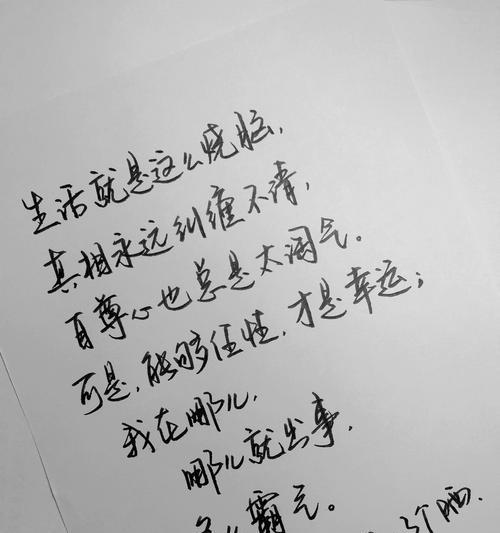 生活就是这么烧脑，
真相永远纠缠不清，
自尊心也总是太淘气。
可是，能够任性，才是幸运；
我在哪儿，
哪儿就出事，
多么霸气。
个晒．